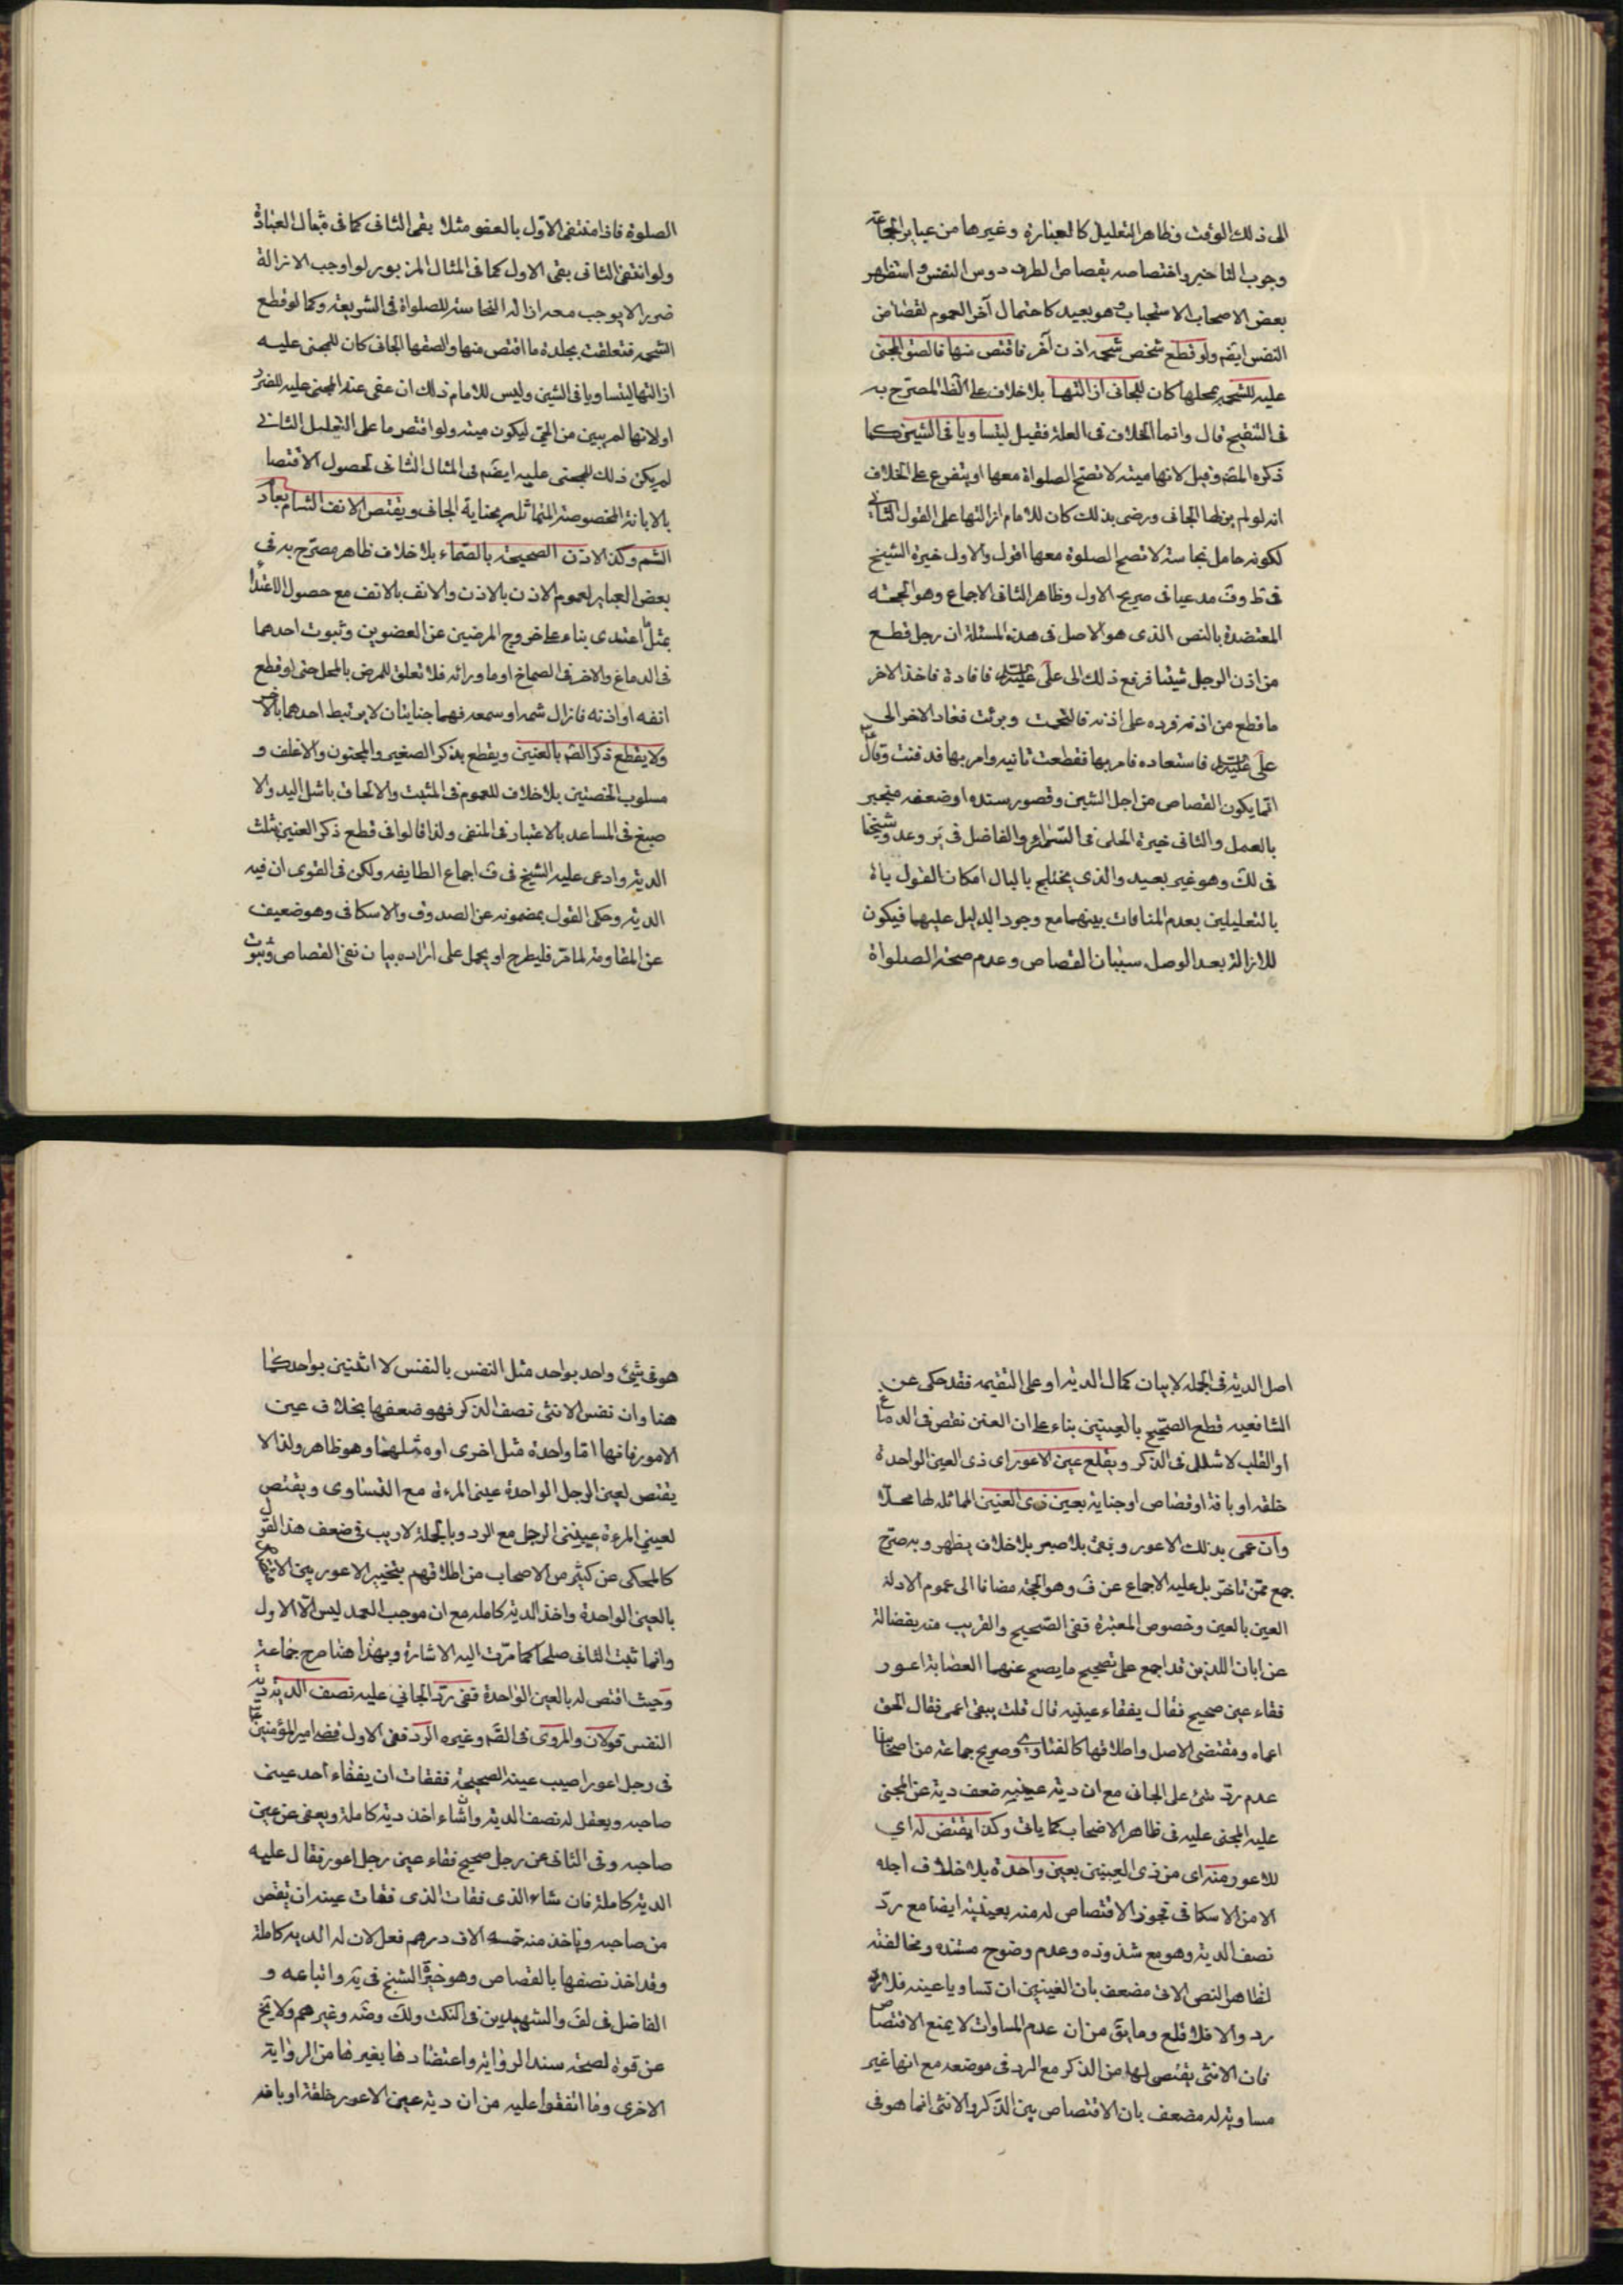 الى ذلك الوقت وظاهر التعليل كالعبارة وغيرها من عباير الجماعة
وجوب التاخير واختصاصه بقصاص الطرف دون النفس واستظهر
بعض الاصحاب الاستحباب وهو بعيد كاحتمال آخر العموم لقصاص
النفس ايضم ولو قطع شخص شحمه اذن آخر فاقتص منها فالصق المجنى
عليه الشحمه بمحلها كان للجانى ازالتها بلا خلاف على الظ المصرح به
فى التنقيح قال وانما الخلاف فى العلة فقيل ليتساويا فى الشين كما
ذكره المصَ وقيل لانها ميته لا تصح الصلواة معها ويتفرع على الخلاف
انه لو لم يزلها الجانى ورضى بذلك كان للامام ازالتها على القول الثانى
لكونه حامل نجاسة لا تصح الصلوة معها اقول والاول خيرة الشيخ
فى ط وفَ مدعيا فى صريح الاول وظاهر الثانى الاجماع وهو الحجة
المعتضدة بالنص الذى هو الاصل فى هذه المسئلة ان رجل قطع
من اذن الرجل شيئا فرفع ذلك الى على فاقاده فاخذ الاخر
ما قطع من اذنه فرده على اذنه فالتحمت وبرئت فعاد الاخر الى
على فاستعاده فامر بها فقطعت ثانيه وامر بها فدفنت وقال
انما يكون القصاص من اجل الشين وقصور سنده او ضعفه منجبر
بالعمل والثانى خيرة الحلى فى السّرائر والفاضل فى يَر وعد وشيخنا
فى لك وهو غير بعيد والذى يختلج بالبال امكان القول باﻥ
بالتعليلين بعدم المنافات بينهما مع وجود الدليل عليهما فيكون
للازالة بعد الوصل سببان القصاص وعدم صحة الصلواة
الصلوة فاذا انتفى الاوّل بالعفو مثلا بقى الثانى كما فى مثال العبادة
ولو انتفى الثانى بقى الاول كما فى المثال المزبور لو اوجب الازالة
ضررا لا يوجب معه ازالة النجاسة للصلواة فى الشريعة وكما لو قطع
الشحمه فتعلقت بجلدة ما اقتص منها والصقها الجانى كان للمجنى عليه
ازالتها ليتساويا فى الشين وليس للامام ذلك ان عفى عنه المجنى عليه للضرر
او لانها لم يبين من الحى ليكون ميته ولو اقتصرنا على التعليل الثانى
لم يكن ذلك للمجنى عليه ايضم فى المثال الثانى لحصول الاقتصا
بالابانة المخصوصة المماثلة بجناية الجانى ويقتص الانف الشام بعادم
الشم وكذا الاذن الصحيحه بالصّماء بلا خلاف ظاهر مصرّح به فى
بعض العباير لعموم الاذن بالاذن والانف بالانف مع حصول الاعتدا
بمثل ما اعتدى بناء على خروج المرضين عن العضوين وثبوت احدهما
فى الدماغ والاخر فى الصماخ او ما ورائه فلا تعلق للمرض بالمحل حتى لو قطع
انفه او اذنه فازال شمه او سمعه فهما جنايتان لا يرتبط احدهما بالاخر
ولا يقطع ذكر الصّ بالعنين ويقطع بذكر الصغير والمجنون والاغلف و
مسلوب الخصتين بلا خلاف للعموم فى المثبت والالحاق باشل اليد والا
صبع فى المساعد بالاعتبار فى المنفى ولذا قالوا فى قطع ذكر العنين ثلث
الدية وادعى عليه الشيخ فى فَ اجماع الطايفه ولكن فى القوى ان فيه
الدية وحكى القول بمضمونه عن الصدوق والاسكافى وهو ضعيف
عن المقاومة لما مرّ فليطرح او يحمل على ارادة بيان نفى القصاص وثبوت
اصل الدية فى الجمله لا بيان كمال الدية او على التقيه فقد حكى عن
الشافعيه قطع الصحيح بالعنين بناء على ان العنن نقص فى الدماغ
او القلب لا شلل فى الذكر ويقلع عين الاعور اى ذى العين الواحدة
خلقه او بافة او قصاص او جناية بعين ذى العنين المماثله لها محلّا
وان عمى بذلك الاعور وبقى بلا بصر بلا خلاف يظهر وبه صرّح
جمع ممّن تاخّر بل عليه الاجماع عن فَ وهو الحجة مضافا الى عموم الادلة
العين بالعين وخصوص المعتبرة ففى الصّحيح والقريب منه بفضالة
عن ابان اللذين قد اجمع على تصحيح ما يصح عنهما العصابة اعور
فقاء عين صحيح فقال يفقاء عينيه قال قلت يبقى اعمى فقال الحق
اعماه ومقتضى الاصل واطلاقها كالفتاوى وصريح جماعة من اصحابنا
عدم ردّ شئ على الجانى مع ان دية عينيه ضعف دية عن المجنى
عليه المجنى عليه فى ظاهر الاصحاب كما ياتى وكذا يقتص له اى
للاعور منه اى من ذى العينين بعين واحدة بلا خلاف اجله
الا من الاسكافى تجوز الاقتصاص له منه بعينيه ايضا مع ردّ
نصف الدية وهو مع شذوذه وعدم وضوح مستنده ومخالفته
لظاهر النص الاتى مضعف بان العينين ان تساويا عينه فلا
رد والا فلا قلع وما بقَ من ان عدم المساوات لا يمنع الاقتصاص
فان الانثى يقتص لها من الذكر مع الرد فى موضعه مع انها غير
مساوية له مضعف بان الاقتصاص بين الذّكر والانثى انما هو فى
هو فى شئ واحد بواحد مثل النفس بالنفس لا اثنين بواحد كما
هنا وان نفس الانثى نصف الذكر فهو ضعفها بخلاف عين
الاعور فانها اما واحدة مثل اخرى او مثلهما وهو ظاهر ولذا لا
يقتص لعين الرجل الواحدة عينى المرءة مع الفتاوى ويقتص
لعينى المرءة عينى الرجل مع الرد وبالجملة لا ريب فى ضعف هذا القول
كالمحكى عن كثير من الاصحاب من اطلاقهم بتخيير الاعور بين الاقتصاص
بالعين الواحدة واخذ الدية كاملة مع ان موجب العمد ليس الّا الاول
وانما ثبت الثانى صلحا كما مرّت اليه الاشارة وبهذا هنا صرح جماعة
وحيث اقتص له بالعين الواحدة ففى ردّ الجانى عليه نصف الدية دية
النفس قولان والمروى فى الصّ وغيره الرد ففى الاول قضى امير المؤمنين
فى رجل اعور اصيب عينه الصحيحة ففقات ان يفقاء احد عينى
صاحبه ويعقل له نصف الدية وان شاء اخذ دية كاملة ويعفى عن عين
صاحبه وفى الثانى عن رجل صحيح فقاء عين رجل اعور فقال عليه
الدية كاملة فان شاء الذى فقات الذى فقات عينه ان يقتص
من صاحبه وياخذ منه خمسه الاف درهم فعل لان له الديه كاملة
وقد اخذ نصفها بالقصاص وهو خيرة الشيخ فى يَه واتباعه و
الفاضل فى لف والشهيدين فى النكت ولك وضه وغيرهم ولا يخ
عن قوة لصحة سند الرواية واعتضادها بغيرها من الرواية
الاخرى وما اتفقوا عليه من ان دية عين الاعور خلقة او بافه